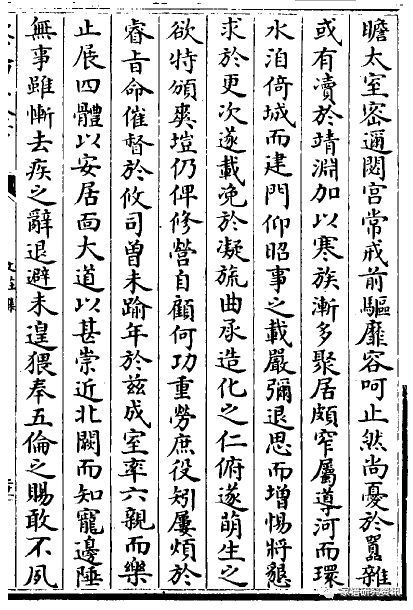 瞻太室密邇閟宮常戒前驅靡容呵止然尚憂於囂雜
或有瀆於靖淵加以寒族漸多聚居頗窄屬導河而環
水泊倚城而建門仰昭事之載嚴彌退思而增惕將懇
求於更次遂載免於凝旒曲承造化之仁俯遂萌生之
欲特頒爽塏仍俾修營自顧何功重勞庶役矧屢煩於
睿旨命催督於攸司曽未踰年於兹成室率六親而樂
止展四體以安居面大道以甚崇近北闕而知寵邊陲
無事雖慚去疾之辭退避未遑猥奉五倫之賜敢不夙